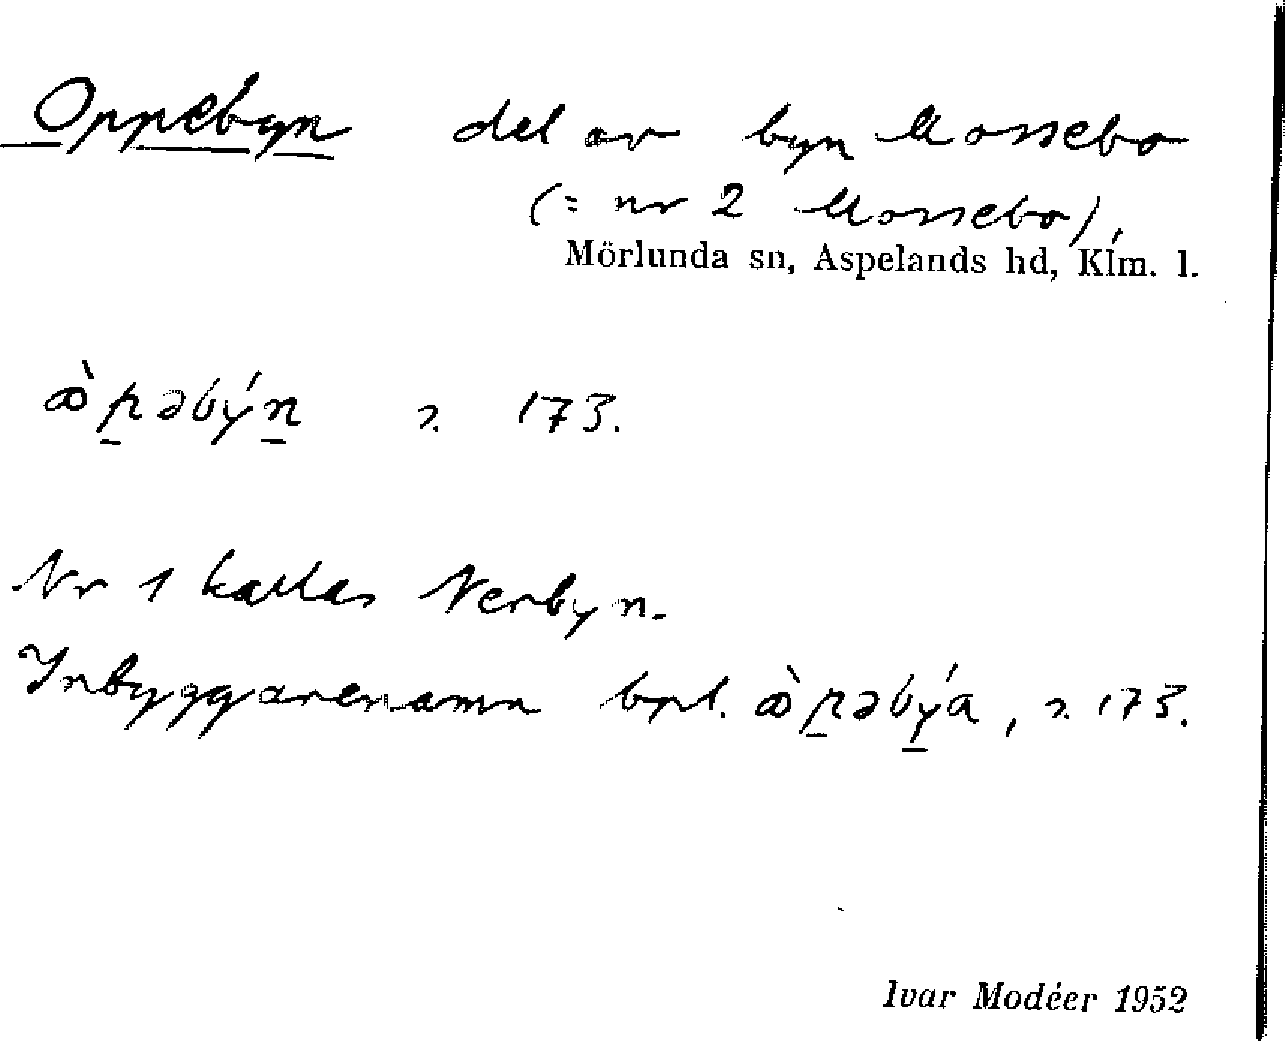 Oppebyn del av byn Mossebo
(= nr 2 Mossebo),
Mörlunda sn, Aspelands hd, Klm. l.
173.
Nr 1 kallas Nerbyn.
Inbyggarenamn bpl. , 173.
Ivar Modéer 1952